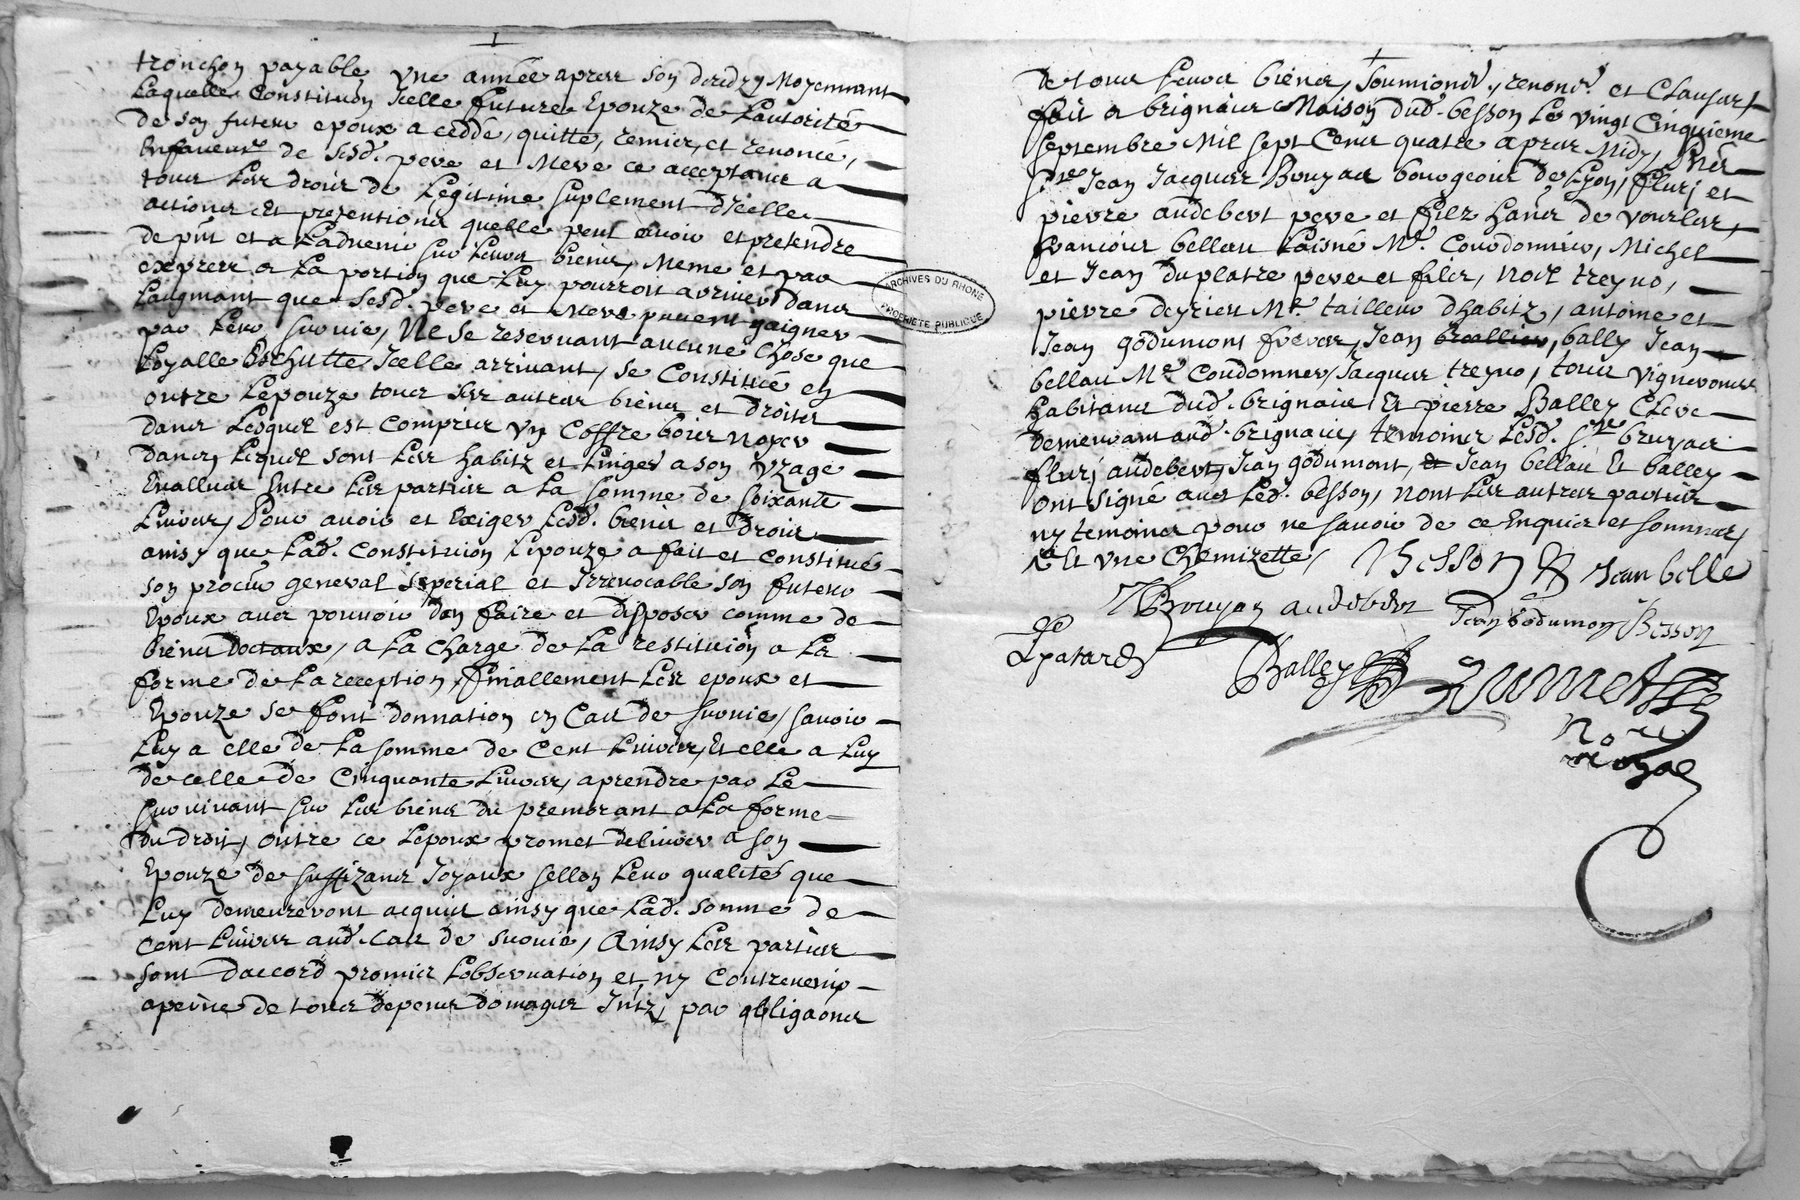 tronchon payable une année apres son decedz, Moyennant
Laquelle Constitution Icelle future Epouze de L'autorité
de son futeur epoux a ceddé, quitté, remis, et renoncé,
Enfaveur de sesd. pere et Mere ce acceptantz a
tous Les droits de Legitime suplement d'Icelle
actions Et pretentions quelle peut avoir et pretendre
de pnt et a Ladvenir sur Leurs biens, Meme et par
expres a La portion que Luy pourroit arriver dans
Laugmant que sesd. pere et Mere puuent gaigner
par Leur survie, Ne se reservant aucune chose que
Loyalle Eschutte Icelle arrivant, se Constitue en
outre Lepouze tous ses autres biens et droits
dans Lesquels est Compris un Coffre bois noyer
dans Lequel sont Les habitz et Linges a son Uzage
Evallues Entre Les parties a La somme de soixante
Livres, Pour avoir et Exiger Lesd. biens et droits
ainsy que Lad. Constitution Lepouze a fait et constitué
son procur general special et Irrevocable son futeur
Epoux avec pouvoir d'en faire et disposer comme de
biens Doctaux, a La charge de La restitution a La
forme de La reception, finallement Les epoux et
Epouze se font donnation en Cas de survie, savoir
Luy a elle de La somme de Cent Livres, Et elle a Luy
de celle de Cinquante Livres, aprendre par Le
survivant sur Les biens du premorant a La forme
du droit, outre ce Lepoux promet delivrer a son
Epouze de suffizans Joyaux sellon Leur qualité que
Luy demeureront acquis ainsy que Lad. somme de
Cent Livres aud. Cas de survie, Ainsy Les parties
sont daccord promis Lobservation et ny Contrevenir
apeine de tous depens domages Intz, par obligaons
de tous Leurs biens, soumions, renons. et Clauses
fait a brignais Maison dud. besson Le vingt Cinquieme
septembre Mil sept Cens quatre apres Midy, Pnts
sr Jean Jacques Bruyas bourgeois de Lyon, fleury et
pierre audebert pere et filz hans de vourles,
francois bellau Laisné Me. Courdonnier, Michel
et Jean duplatre pere et filz, noel treyuo,
pierre deyrieu Me. tailleur dhabitz, antoine et
Jean godumont freres, Jean bally Jean
bellau Me Coudonner, Jacques treyuo, tous vignerons
habitans dud. brignais Et pierre Balley Clerc
demeurant aud. brignais, temoins Lesd. sr bruyas
fleury audebert, Jean godumont, Jean bellau Et balley
ont signé avec Led. besson, non Les autres parties
ny temoins pour ne savoir de ce Enquis et sommes,
Et une Chemizette, Besson Jean belle
JBruyas audebert Jean Godumon Besson
Balley
Nore
royal
ARCHIVES DU RHONE
PROPRIETE PUBLIQUE